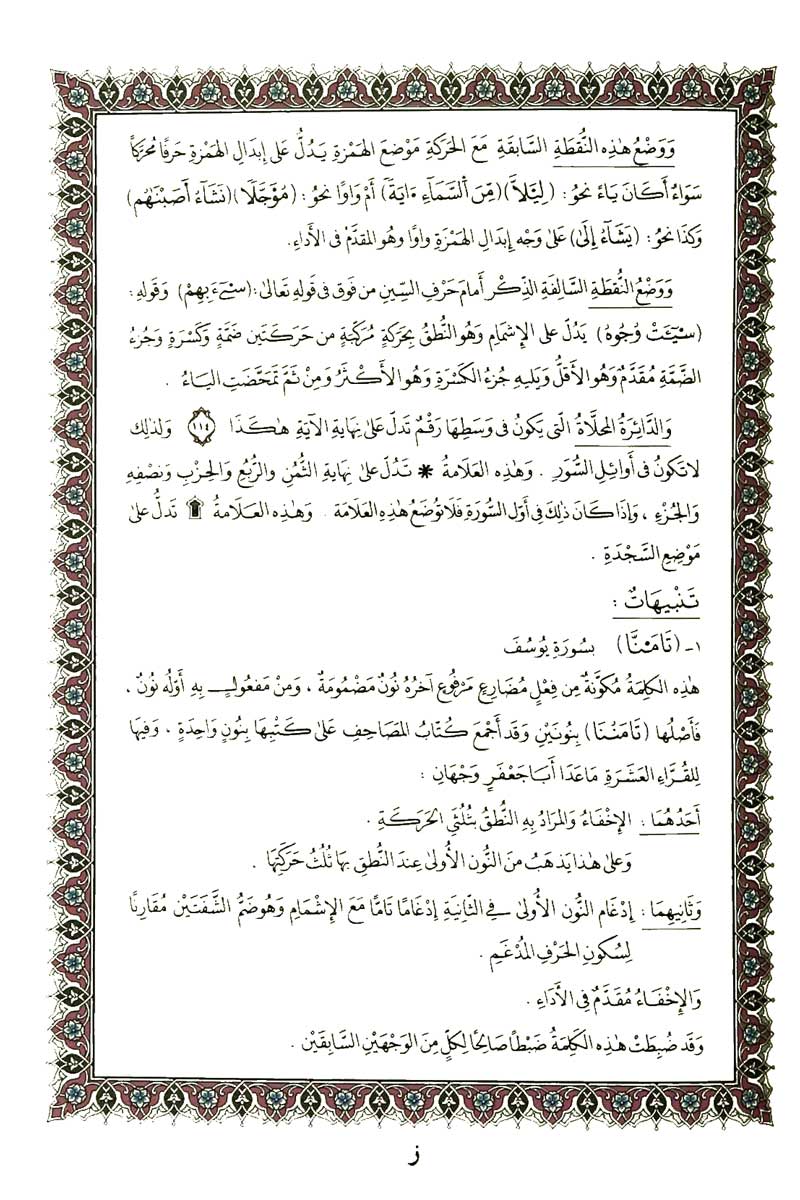 وَوَضْعُ هٰذِهِ النُّقطَةِ السَّابقَةِ مَعَ الحَرَكَةِ مَوْضِعَ الهَمْزَةِ يَدُلُّ عَلى إبدَالِ الهَمْزَةِ حَرفًا مُحَرَّكًا
سَوَاءٌ أَكَانَ يَاءً نحوُ : (لِيَلَّا) (مِّنَ اَلسَّمَآءِ ءَايَةً) أَمْ وَاوًا نحوُ : (مُؤَجَّلًا) (نَشَآءُ أَصَبْنَٰهُم)
وَكَذَا نحوُ : (يَشَآءُ إِلَىٰ) عَلىٰ وَجْهِ إبدَالِ الهَمْزَةِ وَاوًا وهُو المقدَّمُ فى الأداءِ.
وَوَضْعُ النُّقطَةِ السَّالِفَةِ الذِّكْرِ أَمَامَ حَرْفِ السِّينِ من فَوق فى قَولِهِ تَعَالىٰ : (سِيٓءَ بِهِمْ) وَقولِهِ :
(سِيٓـَٔتْ وُجُوهُ) يَدُلّ عَلى الإشمَامِ وَهُو النُّطقُ بِحَرَكةٍ مُرَكّبةٍ من حَركَتَين ضَمَّةٍ وَكَسْرَةٍ وَجُزءُ
الضَّمَّةِ مُقَدَّمٌ وَهُو الأَقلُّ وَيَلِيهِ جُزءُ الكَسْرَةِ وَهُو الأَكْثَرُ وَمِنْ ثَمَّ تَمَحَّضَتِ اليَاءُ .
وَالدَّائِرَةُ المحلَّاةُ الّتى يَكونُ فى وَسَطِهَا رَقْمٌ تَدلّ عَلىٰ نِهَايةِ الآيَةِ هٰكَذَا ١١٤ وَلذلِك
لاتَكونُ فى أَوائِلِ السُّوَرِ . وَهٰذِهِ العَلَامَةُ * تَدُلّ عَلىٰ نِهَايةِ الثُّمُنِ والرُّبُعِ وَالحِزْبِ وَنصْفِهِ
وَالجُزْءِ ، وَإذَا كَانَ ذٰلِكَ فى أَوّلِ السُّورَةِ فَلَا تُوضَعُ هٰذِهِ العَلَامَة . وَهٰذِهِ العَلَامَةُ ۩ تَدلُّ عَلىٰ
مَوْضِعِ السَّجْدَةِ .
تَنْبِيهَاتٌ :
١- (تَامَ۬نَّا) بسُورَةِ يُوسُفَ
هٰذِهِ الكَلِمَةُ مُكَوَّنَةٌ مِن فِعْلٍ مُضَارِعٍ مَرْفُوعٍ آخرُهُ نُونٌ مَضْمُومَةٌ ، وَمِنْ مَفعُولٍ بِهِ أَوّلُهُ نُونٌ ،
فَأَصْلُهَا (تَامَنُنَا) بنُونَيْنِ وَقَد أَجْمَعَ كُتّابُ المصَاحِفِ عَلىٰ كَتْبِهَا بنُونٍ وَاحِدَةٍ ، وَفِيهَا
لِلقُرَّاءِ العَشَرَةِ مَا عَدَا أَبَا جَعْفَرٍ وَجْهَانِ :
أَحَدُهُمَا : الإخْفَاءُ وَالمرَادُ بِهِ النُّطقُ بثُلُثَىِ الحَرَكَةِ .
وَعَلىٰ هٰذَا يَذهَبُ منَ النُّونِ الأولىٰ عِندَ النُّطقِ بهَا ثُلُثُ حَرَكتِهَا .
وَثَانِيهِمَا : إدْغَام النُّونِ الأُولىٰ فِى الثَّانِيَةِ إدْغَامًا تَامًّا مَعَ الإشْمَامِ وَهُوضَمُّ الشَّفَتَيْنِ مُقَارنًا
لِسُكونِ الحَرْفِ المُدْغَمِ .
وَالإخْفَاءُ مُقَدَّمٌ فى الأَدَاءِ .
وَقَد ضُبِطَتْ هٰذِهِ الكَلِمَةُ ضَبْطًا صَالِحًا لِكلٍّ مِنَ الوَجْهَيْنِ السَّابقَيْنِ .
ز